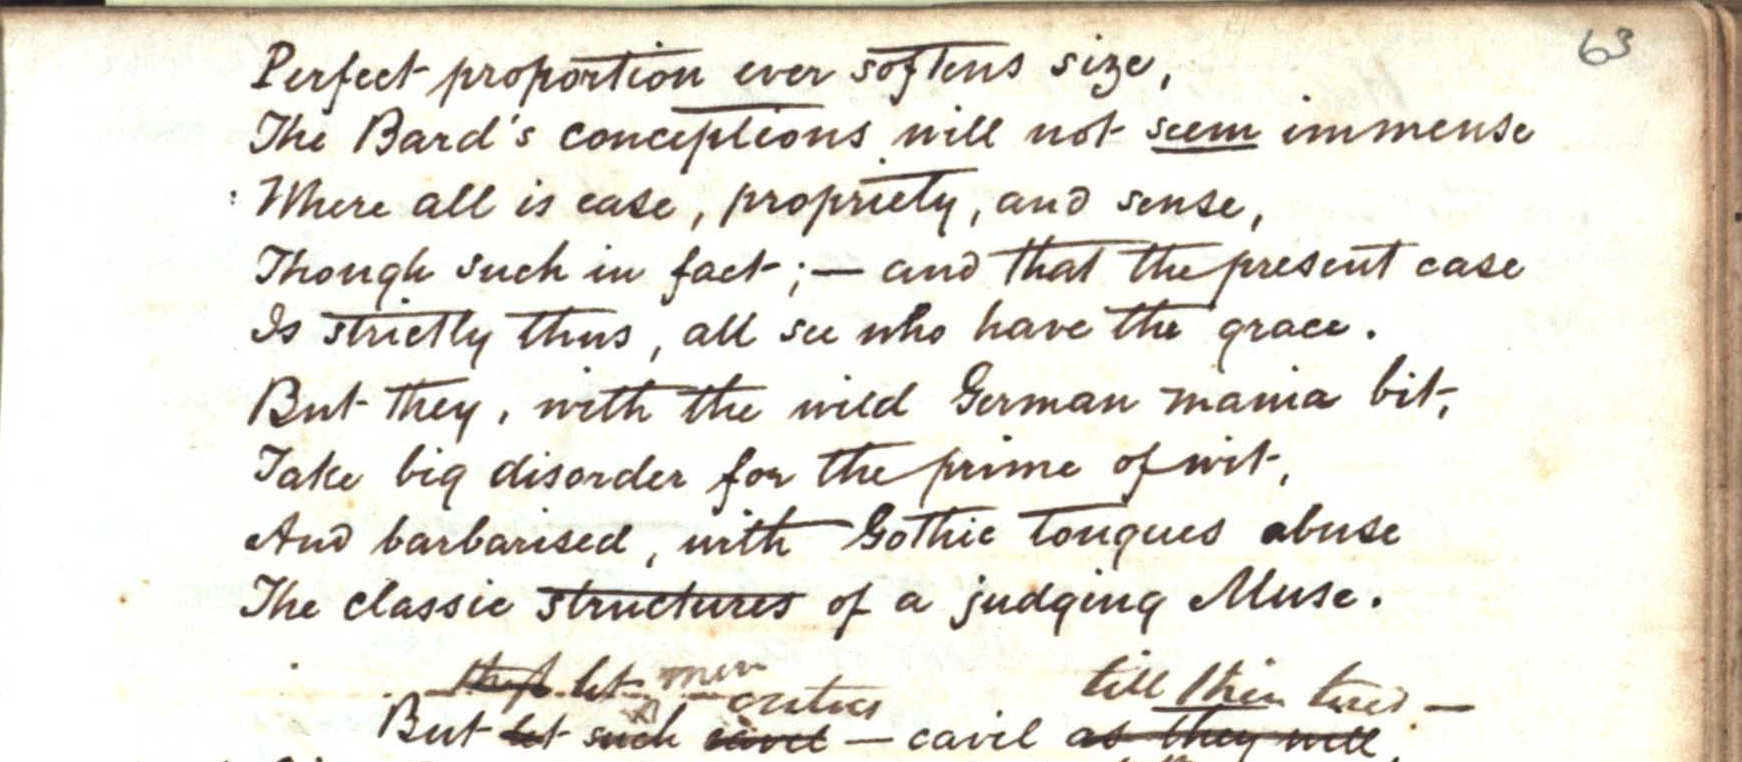 63
Perfect proportion ever softens size,
The Bard's conceptions will not seem immense
Where all is ease, propriety, and sense,
Though such in fact; — and that the present case
Is strictly thus, all see who have the grace.
But they, with the wild German mania bit,
Take big disorder for the prime of wit,
And barbarised, with Gothic tongues abuse
The classic structures of a judging Muse.
let men till tired —
critics
But let such cavil — cavil as they will,